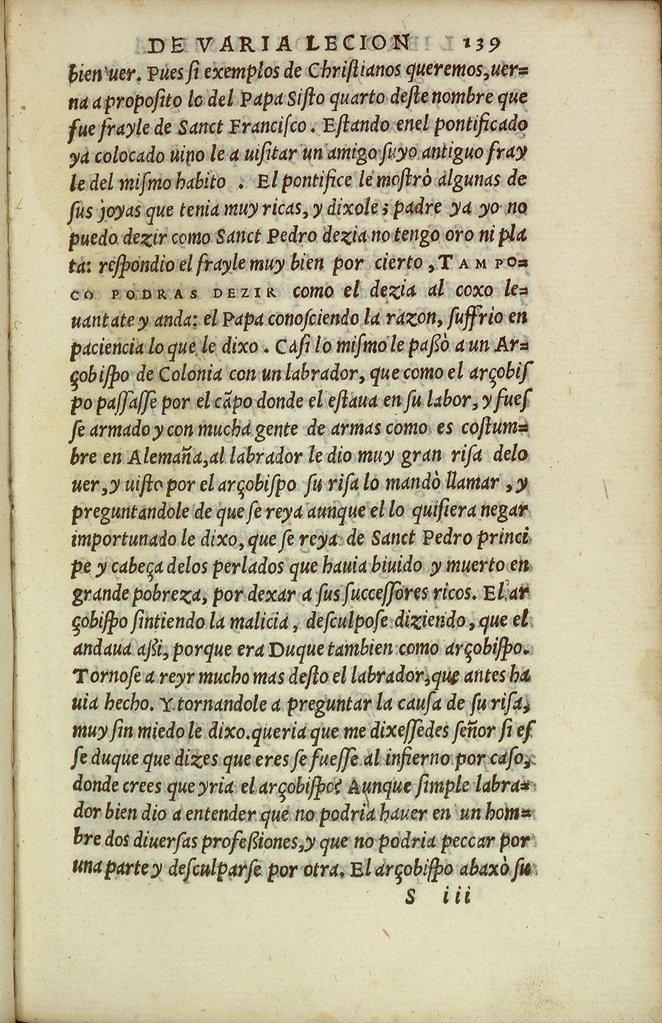 DE VARIA LECION 139
bien uer. Pues ſi exemplos de Chriſtianos queremos, uer=
na a propoſito lo del Papa Siſto quarto deſte nombre que
fue frayle de Sanct Franciſco. Eſtando enel pontificado
ya colocado uino le a uiſitar un amigo ſuyo antiguo fray
le del miſmo habito . El pontifice le moſtrò algunas de
ſus joyas que tenia muy ricas, y dixole; padre ya yo no
puedo dezir como Sanct Pedro dezia no tengo oro ni pla
ta: reſpondio el frayle muy bien por cierto, TAMPO=
CO PODRAS DEZIR como el dezia al coxo le=
uantate y anda: el Papa conoſciendo la razon, ſuffrio en
paciencia lo que le dixo. Caſi lo miſmo le paßò a un Ar=
çobiſpo de Colonia con un labrador, que como el arçobiſ
po paſſaſſe por el cãpo donde el eſtaua en ſu labor, y fueſ
ſe armado y con mucha gente de armas como es coſtum=
bre en Alemaña, al labrador le dio muy gran riſa delo
uer, y uiſto por el arçobiſpo ſu riſa lo mandò llamar, y
preguntandole de que ſe reya aunque el lo quiſiera negar
importunado le dixo, que ſe reya de Sanct Pedro princi
pe y cabeça delos perlados que hauia biuido y muerto en
grande pobreza, por dexar a ſus ſucceſſores ricos. El ar
çobiſpo ſintiendo la malicia, deſculpoſe diziendo, que el
andaua aßi, porque era Duque tambien como arçobiſpo.
Tornoſe a reyr mucho mas deſto el labrador, que antes ha
uia hecho. Y tornandole a preguntar la cauſa de ſu riſa,
muy ſin miedo le dixo. queria que me dixeſſedes ſeñor ſi eſ
ſe duque que dizes que eres ſe fueſſe al infierno por caſo,
donde crees que yria el arçobiſpo? Aunque ſimple labra=
dor bien dio a entender que no podria hauer en un hom=
bre dos diuerſas profeßiones, y que no podria peccar por
una parte y deſculparſe por otra. El arçobiſpo abaxò ſu
S iii